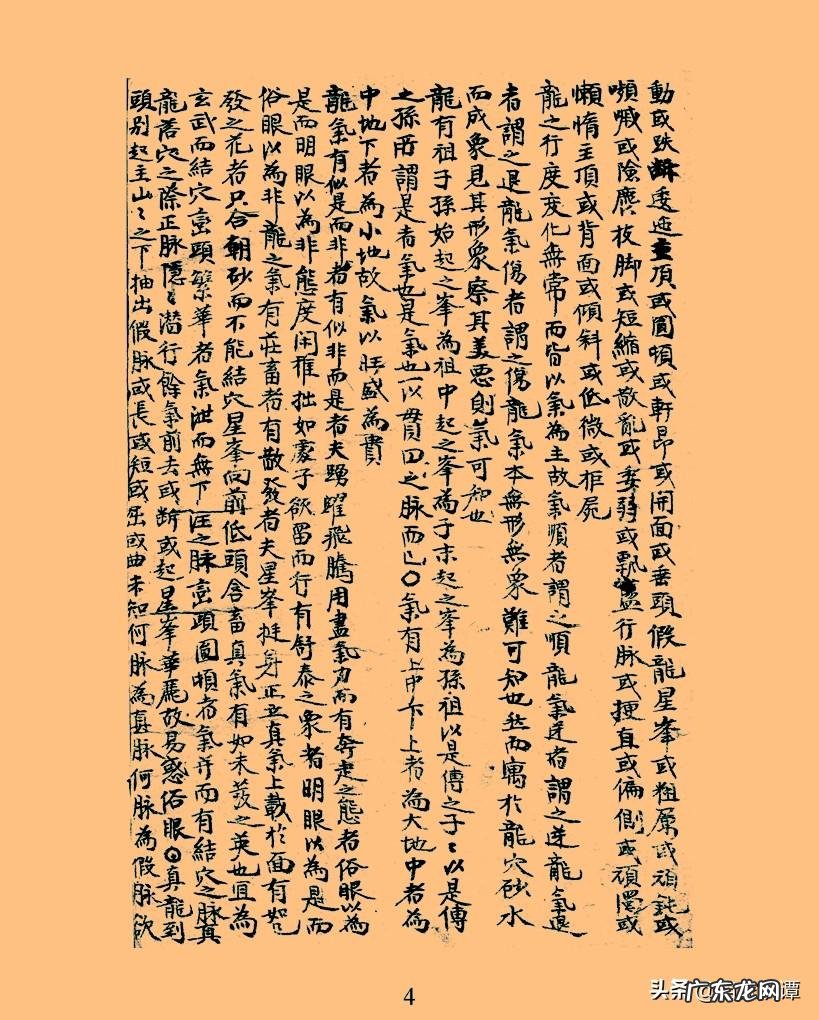 動或跌斷逶迤主頂或圓頓或軒昂或開面或垂頭假龍星峯或粗厲或頑鈍或
嚬嘁或險麂枝脚或短縮或散亂或委弱或飄蕩行脉或挭直或偏側或頑濁或
懶惰主頂或背面或傾斜或低微或柜屍
龍之行度変化無常而皆以氣為主故氣順者謂之順龍氣逆者謂之逆龍氣退
者謂之退龍氣傷者謂之傷龍氣本無形無象難可知也然而寓於龍穴砂水
而成象見其形象察其美惡則氣可知也
龍有祖子孫始起之峯為祖中起之峯為子末起之峯為孫祖以是傳之子〻以是傳
之孫所謂是者氣也是氣也一以貫四之脉而已〇氣有上中下上者為大地中者為
中地下者為小地故氣以旺盛為貴
龍氣有似是而非者有似非而是者夫踴躍飛騰用盡氣力而有奔走之態者俗眼以為
是而明眼以為非態度闲雅拙如處子欲留而行有舒泰之象者明眼以為是而
俗眼以為非龍之氣有莊畜者有散發者夫星峯挺身正立真氣上載於面有如已
發之花者只合朝砂而不能結穴星峯向前低頭含畜真氣有如未發之英也宜為
玄武而結穴巒頭繁華者氣泄而無下注之脉巒頭圓頓者氣并而有結穴之脉真
龍落穴之際正脉隱〻潜行餘氣前去或斷或起星峯華麗故易惑俗眼〇真龍到
頭别起主山〻之下抽出假脉或長或短或屈或曲未知何脉為真脉何脉為假脉欲
4
头条 广东龙网 谭